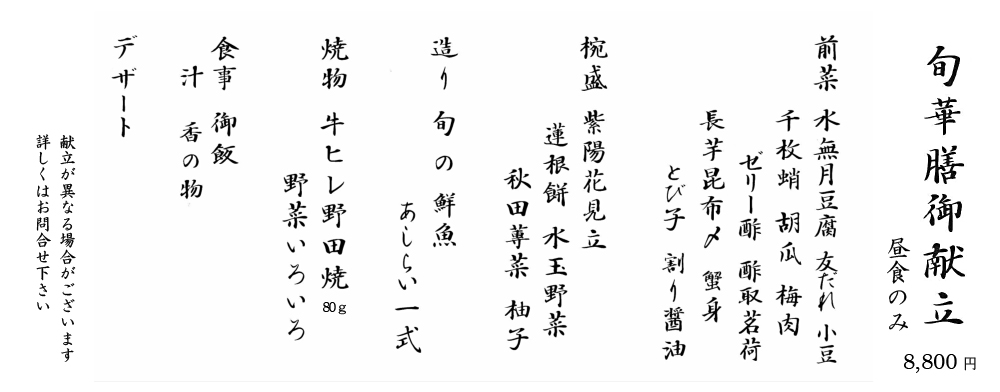 旬華膳御献立
昼食のみ
8,800 円
前菜 水無月豆腐 友だれ 小豆
千枚蛸 胡瓜 梅肉
ゼリー酢 酢取茗荷
長芋昆布〆 蟹身
とび子 割り醤油
椀盛 紫陽花見立
蓮根餅 水玉野菜
秋田蓴菜 柚子
造り 旬の鮮魚
あしらい一式
焼物 牛ヒレ野田焼 80g
野菜いろいろ
食事 御飯
汁 香の物
デザート
献立が異なる場合がございます
詳しくはお問合せ下さい